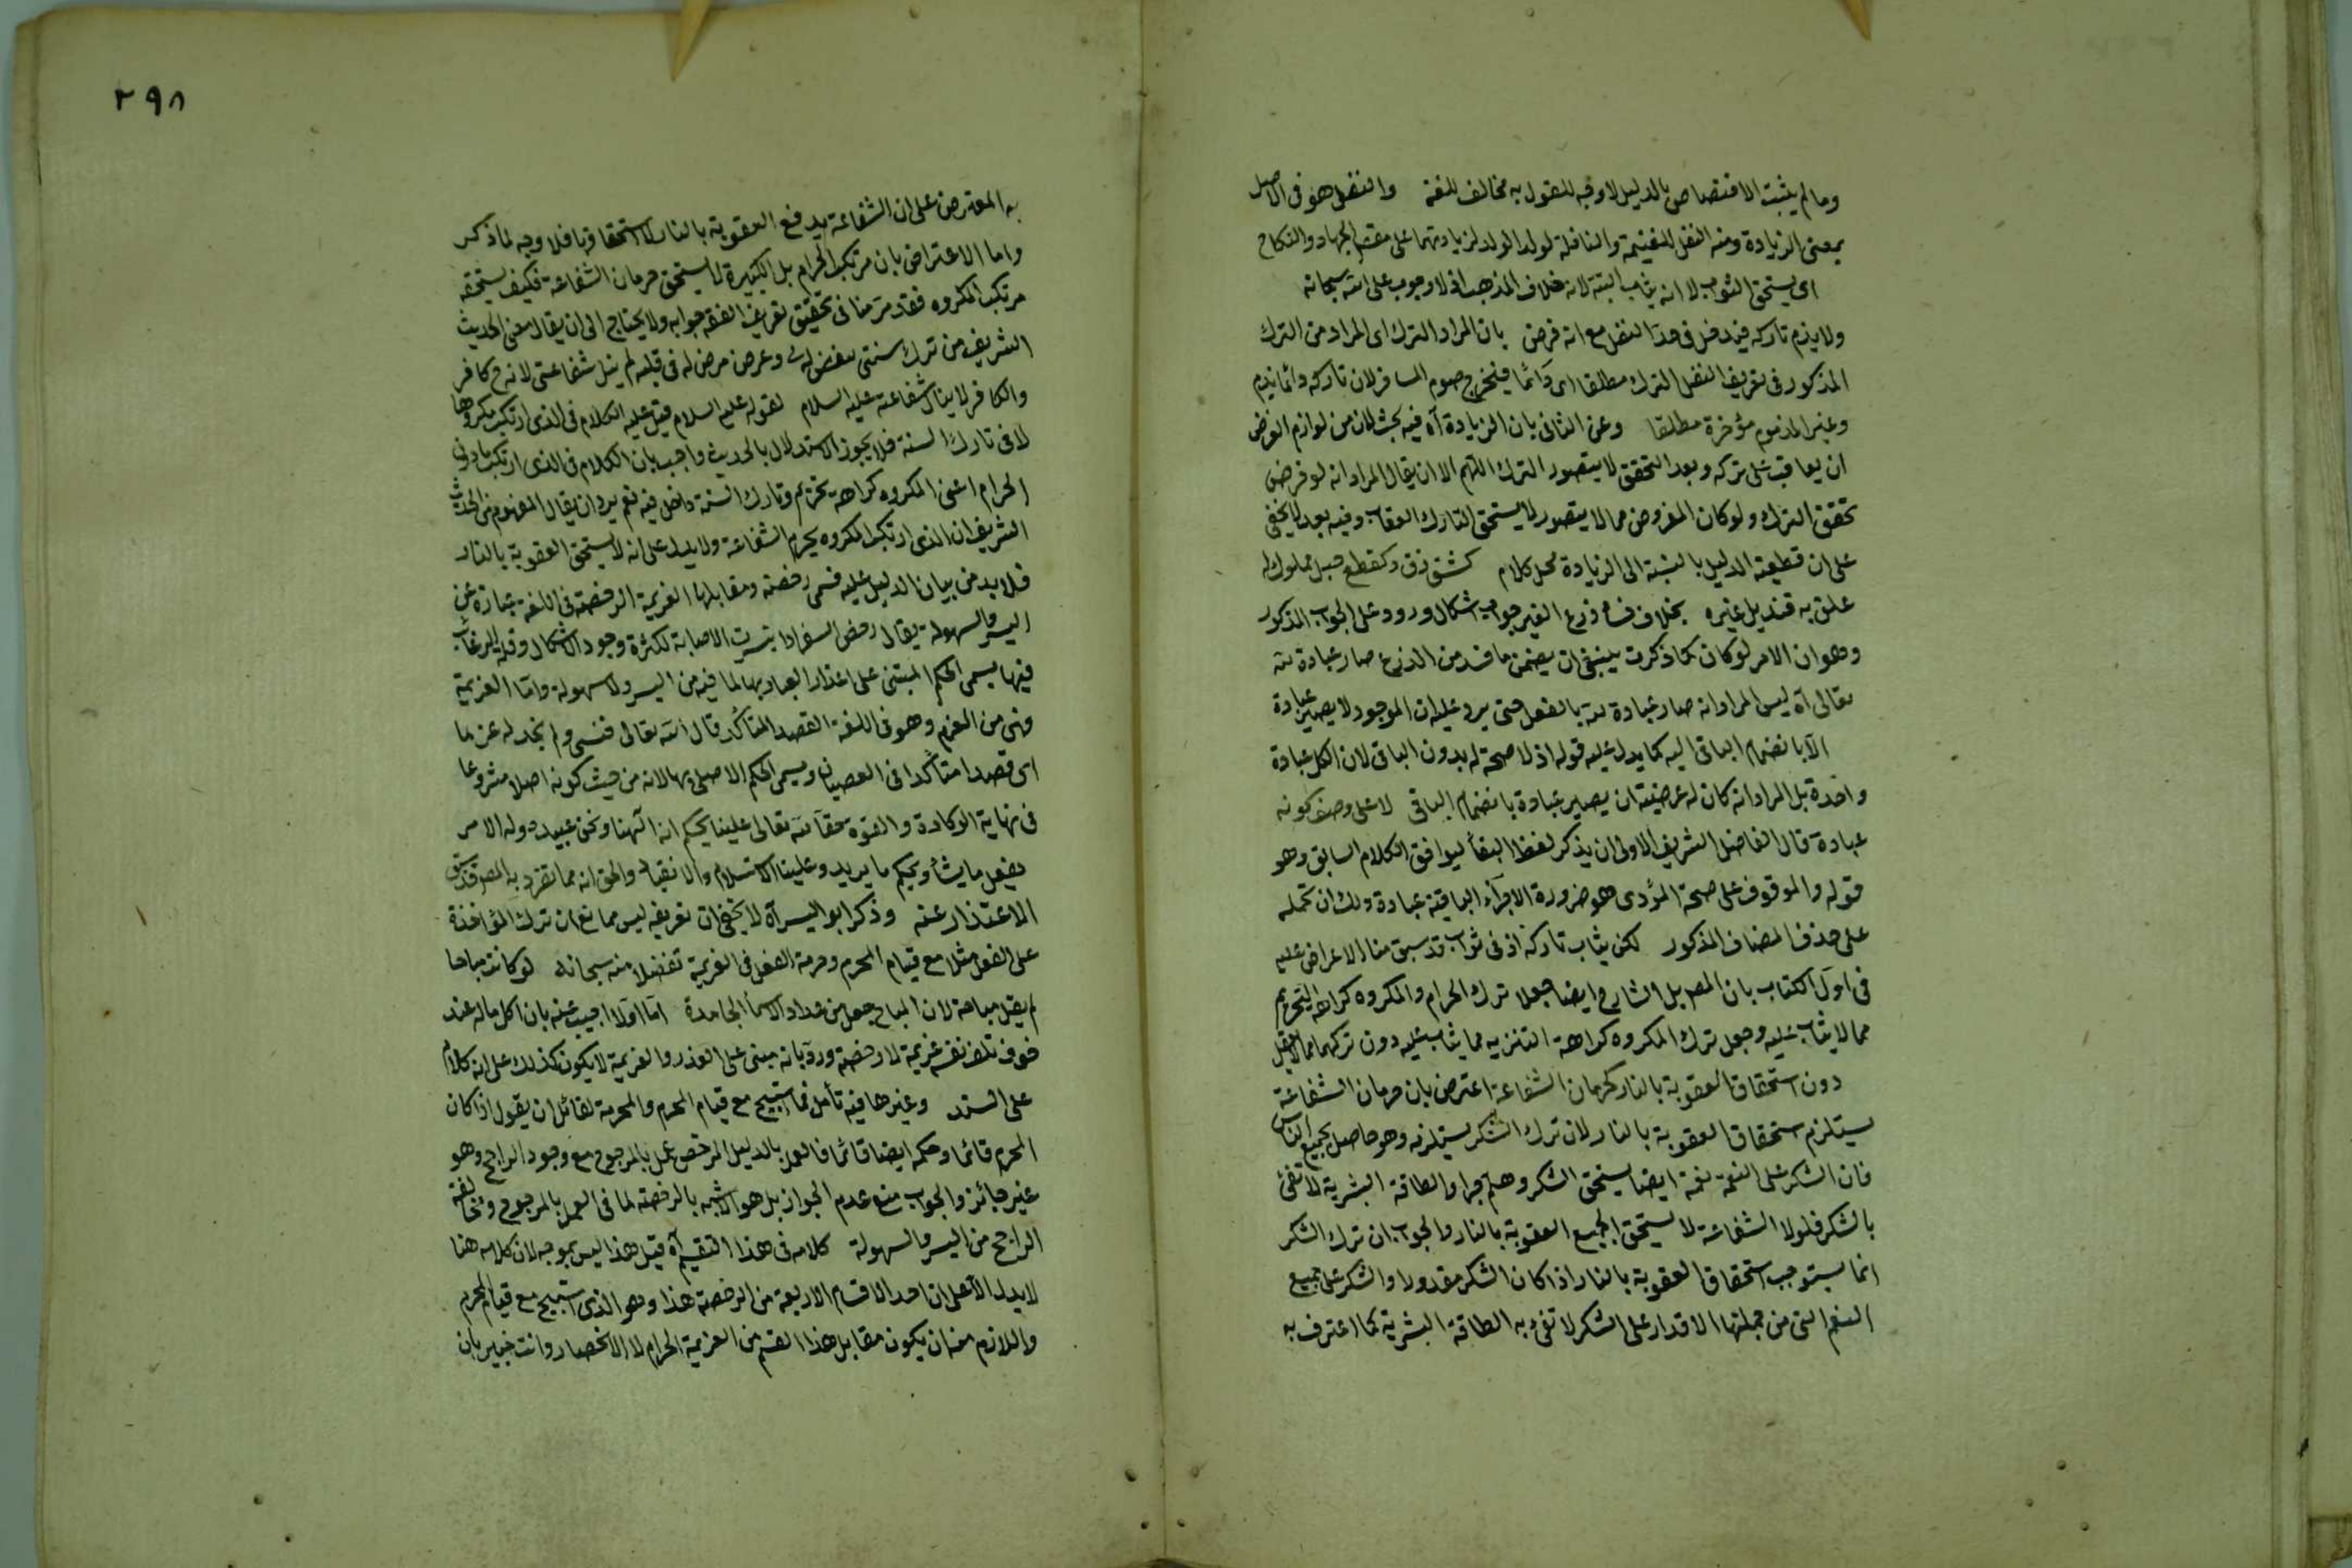 وما لم يثبت الاختصاص بالدليل لا وجه للقول به مخالف للغة والنفل هو فى الاصل
بمعنى الزيادة ومنه النفل للغنيمة والنافلة لولد الولد لزيادتهما على مقصد الجهاد والنكاح
اى يستحق الثواب لا انه يثاب البتة لانه خلاف المذهب اذ لا وجوب على الله سبحانه
ولا يذم تاركه فيدخل فى حد النفل مع انه فرض بان المراد الترك اى المراد من الترك
المذكور فى تعريف النفل الترك مطلقا اى دائما فيخرج صوم المسافر لان تاركه دائما يذم
وغير المذموم مؤخره مطلقا وعن الثانى بان الزيادة آه فيه بحث لان من لوازم الفرض
ان يعاقب على تركه وبعد التحقق لا يتصور الترك اللهم الا ان يقال المراد انه لو فرض
تحقق الترك ولو كان المفروض مما لا يتصور لا يستحق التارك العقاب وفيه بعد لا يخفى
على ان قطعية الدليل بالنسبة الى الزيادة محل كلام كشق زق وكقطع حبل مملوك له
علق به قنديل غيره بخلاف فساد زرع الغير جواب اشكال ورود على الجواب المذكور
وهو ان الامر لو كان كما ذكرت ينبغى ان يضمن ما فسد من الزرع صار عبادة لله
تعالى آه ليس المراد انه صار عبادة لله بالفعل حتى يرد عليه ان الموجود لا يصير عبادة
الا بانضمام الباقى اليه كما يدل عليه قوله اذ لا صحة له بدون الباقى لان الكل عبادة
واحدة بل المراد انه كان له عرضية ان يصير عبادة بانضمام الباقى لا على وصف كونه
عبادة قال الفاضل الشريف الاولى ان يذكر لفظ البقأ ليوافق الكلام السابق وهو
قوله والموقوف على صحة المؤدى هو ضرورة الاجزاء الباقية عبادة ولك ان تحمله
على حذف المضاف المذكور لكن يثاب تاركه اذ فى ثواب قد سبق منا الاعراض عليه
فى اول الكتاب بان المص بل الشارح ايضا جعلا ترك الحرام والمكروه كراهة التحريم
مما لا يثاب عليه وجعل ترك المكروه كراهة التنزيه مما يثاب عليه دون تركهما مما لا يعقل
دون استحقاق العقوبة بالنار كحرمان الشفاعة اعترض بان حرمان الشفاعة
يستلزم استحقاق العقوبة بالنار لان ترك الشكر يستلزمه وهو حاصل بجميع الناس
فان الشكر على النعمة نعمة ايضا يستحق الشكر وهلم جرا والطاقة البشرية لا تفئ
بالشكر فلولا الشفاعة لا يستحق الجميع العقوبة بالنار والجواب ان ترك الشكر
انما يستوجب استحقاق العقوبة بالنار اذا كان الشكر مقدورا والشكر على جميع
النعم التى من جملتها الاقدار على الشكر لا تفئ به الطاقة البشرية كما اعترف به
٢٩٨
به المعترض على ان الشفاعة يدفع العقوبة بالنار لا استحقاقها فلا وجه لما ذكر
واما الاعتراض بان مرتكب الحرام بل الكبيرة لا يستحق حرمان الشفاعة فكيف يستحقه
مرتكب المكروه فقد مر منا فى تحقيق تعريف الفقه جوابه ولا يحتاج الى ان يقال معنى الحديث
الشريف من ترك سنتى لبغض لى وعرض مرض له فى قلبه لم ينل شفاعتى لانه ح كافر
والكافر لا ينال شفاعته عليه السلام لقوله عليه السلام قيل عليه الكلام فى الذى ارتكب مكروها
لا فى تارك السنة فلا يجوز الاستدلال بالحديث واجيب بان الكلام فى الذى ارتكب ما دون
الحرام اعنى المكروه كراهة تحريم وتارك السنة داخل فيه نعم يرد ان يقال المفهوم من الحديث
الشريف ان الذى ارتكب المكروه يحرم الشفاعة ولا يدل على انه لا يستحق العقوبة بالنار
فلا بد من بيان الدليل عليه فسمى رخصة ومقابلها العزيمة الرخصة فى اللغة عبارة عن
اليسر والسهولة يقال رخص السعر اذا تيسرت الاصابة لكثرة وجود الاشكال وقلة الرغائب
فيها يسمى الحكم المبتنى على اعذار العباد بها لما فيه من اليسر والسهولة واما العزيمة
فهى من العزم وهو فى اللغة القصد المتأكد قال الله تعالى فنسى ولم نجد له عزما
اى قصدا متأكدا فى العصيان ويسمى الحكم الاصلى بها لانه من حيث كونه اصلا مشروعا
فى نهاية الوكادة والقوة حقا لله تعالى علينا بحكم انه آلهنا ونحن عبيده وله الامر
يفعل ما يشأ ويحكم ما يريد وعلينا الاستسلام والانقياد والحق انه مما تفرد به المص قد سبق
الاعتذار عنه وذكر ابو اليسر آه لا يخفى ان تعريفه ليس مما نع ان ترك المؤاخذة
على الفعل مثلا مع قيام المحرم وحرمة الفعل فى العزيمة تفضلا منه سبحانه لو كانت مباحا
لم يقل مباحة لان المباح جعل من عداد الاسمأ الجامدة اما اولا اجيب عنه بان اكل ماله عند
خوف تلف نفسه عزيمة لا رخصة ورد بانه مبنى على العذر والعزيمة لا يكون كذلك على انه كلام
على السند وغيرها فيه تأمل فما استبيح مع قيام المحرم والحرمة لقائل ان يقول اذا كان
المحرم قائما وحكمه ايضا قائما فالعمل بالدليل المرخص عمل بالمرجوح مع وجود الراجح وهو
غير جائز والجواب منع عدم الجواز بل هو الاشبه بالرخصة لما فى العمل بالمرجوح ومخالفة
الراجح من اليسر والسهولة كلامه فى هذا التقسيم آه قيل هذا ليس بموجه لان كلامه هنا
لا يدل الا على ان احد الاقسام الاربعة من الرخصة هذا وهو الذى استبيح مع قيام المحرم
واللازم منه ان يكون مقابل هذا القسم من العزيمة الحرام لا الانحصار وانت خبير بان